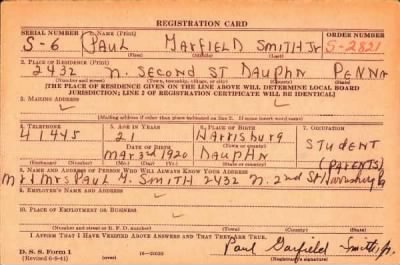 REGISTRATION CARD
SERIAL NUMBER 1. NAME (Print) ORDER NUMBER
S-6 PAUL GARFIELD SMITH JR S-2821
(First) (Middle) (Last)
2. PLACE OF RESIDENCE (Print)
2432 N. SECOND ST DAUPHN PENNA
(Number and street) (Town, township, village, or city) (County) (State)
[THE PLACE OF RESIDENCE GIVEN ON THE LINE ABOVE WILL DETERMINE LOCAL BOARD
JURISDICTION; LINE 2 OF REGISTRATION CERTIFICATE WILL BE IDENTICAL]
3. MAILING ADDRESS
✓
[Mailing address if other than place indicated on line 2. If same insert word same]
4. TELEPHONE 5. AGE IN YEARS 6. PLACE OF BIRTH 7. OCCUPATION
41445 21 Harrisburg STUDENT
DATE OF BIRTH (Town or county)
MAR 3rd 1920 DAUPHN
(Exchange) (Number) (Mo.) (Day) (Yr.) (State or country) (PARENTS)
8. NAME AND ADDRESS OF PERSON WHO WILL ALWAYS KNOW YOUR ADDRESS
Mr & Mrs PAUL G. SMITH 2432 N. 2nd ST Harrisburg Pa
9. EMPLOYER'S NAME AND ADDRESS
✓
10. PLACE OF EMPLOYMENT OR BUSINESS
✓
(Number and street or R. F. D. number) (Town) (County) (State)
I AFFIRM THAT I HAVE VERIFIED ABOVE ANSWERS AND THAT THEY ARE TRUE.
D. S. S. Form 1 Paul Garfield Smith, Jr.
(Revised 6-9-41) (Registrant's signature)